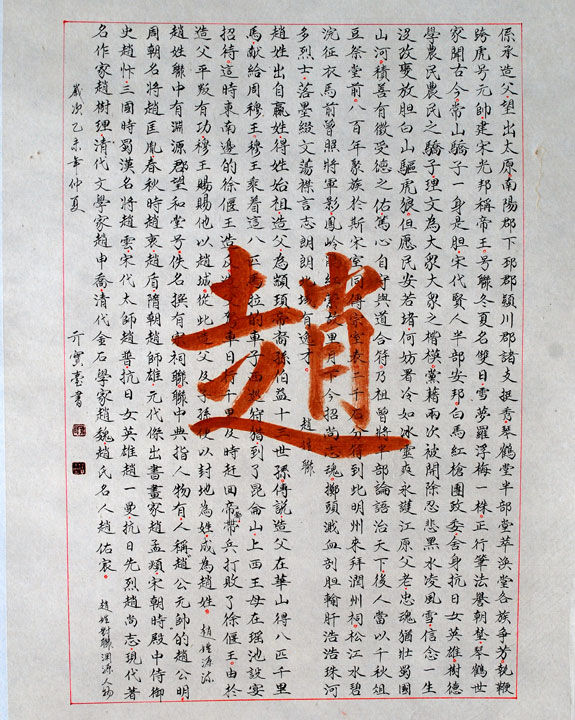 係承造父望出太原南陽郡下邳郡潁川郡諸支挺秀琴鶴堂半部堂萃渙堂各族爭芳執鞭
跨虎号元帥建宋光邦稱帝王号聯冬夏名雙日雪夢羅浮梅一株正行筆法譽朝楚琴鶴世
家聞古今常山驕子一身是胆宋代賢人半部安邦白馬紅槍團政委舍身抗日女英雄樹德
學農民農民之驕子理文為大衆大衆之楷模黨籍兩次被開除忍悲黑水凌風雪信念一生
没改變放胆白山驅虎狼但愿民安若堵何妨署冷如冰靈爽永護江原父老忠魂猶壯蜀國
山河積善有徵受德之佑篤心自守與道合符乃祖曾將半部論語治天下後人當以千秋俎
豆祭堂前八百年聚族於斯宋室同傳宗室表二千石分符到此明州來拜潤州祠松江水碧
浣征衣馬前曾照將軍影鳳嶺 里月下今招尚志魂擲頭濺血剖胆輸肝浩浩珠河
多烈士落墨綴文蕩襟言志朗朗 域有逸才 趙姓聯
趙姓出自嬴姓得姓始祖造父為顓頊帝裔孫伯益十三世孫傳說造父在華山得八匹千里
馬献給周穆王穆王乘着這八匹馬拉的車子西 狩猎到了昆侖山上西王母在瑶池設宴
招待這時東南邊的徐偃王造反 車日行千里及時赶回帝 帶兵打敗了徐偃王由於
造父平叛有功穆王賜賜他以趙城從此造父及子孫便以封地為姓成為趙姓 趙姓源流
趙姓聯中有淵源郡望和堂号佚名撰有 祠聯聯中典指人物有人稱趙公元帥的趙公明
周朝名將趙匡胤春秋時趙衰趙盾隋朝趙師雄元代傑出書畫家趙孟頫宋朝時殿中侍御
史趙忭三國時蜀漢名將趙雲宋代太師趙普抗日女英雄趙一曼抗日先烈趙尚志現代著
名作家趙樹理清代文學家趙申喬清代金石學家趙魏趙氏名人趙佑宸 趙姓對聯淵源人物
歲次乙未年仲夏 亓寶臺書
趙